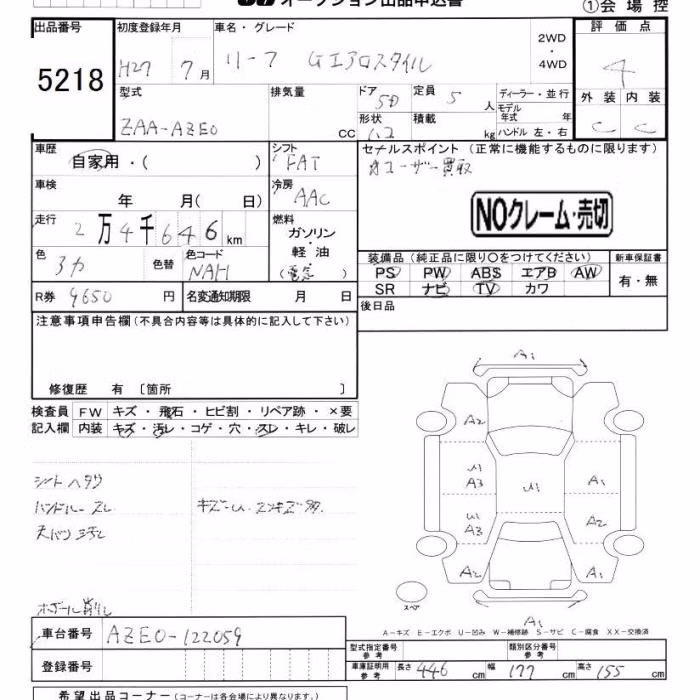 オークション出品申込書
①会場控
出品番号 初度登録年月 車名・グレード 評価点
5218 H27 7月 リーフ Gエアロスタイル 2WD・4WD 4
型式 排気量 ドア 5D 定員 5人 ディーラー・並行 外装 内装
ZAA-AZE0 cc 形状 積載 kg モデル年式 年 ハンドル 左・右 C C
車歴 シフト セールスポイント (正常に機能するものに限ります)
自家用・( ) FAT ユーザー買取
車検 冷房
年 月( 日) AAC
NOクレーム・売切
走行 燃料
2万4千646km ガソリン・軽油
色 色替 色コード (電気)
3カ NAH
装備品 (純正品に限り○をつけてください) 新車保証書
PS PW ABS エアB AW 有・無
SR ナビ TV カワ
R券 9650円 名変通知期限 月 日 後日品
注意事項申告欄 (不具合内容等は具体的に記入して下さい)
修復歴 有 〔箇所 〕
検査員 FW キズ・飛石・ヒビ割・リペア跡・×要
記入欄 内装 キズ・汚レ・コゲ・穴・スレ・キレ・破レ
シートヘタリ
ハンドルスレ
A1
A2
U1 A3 U1 A1
U1 A3 A2
A2 A1
スペア
A1
A―キズ E―エクボ U―凹み W―補修跡 S―サビ C―腐食 XX―交換済
車台番号 AZE0-122059
型式指定番号 参考 類別区分番号 参考
登録番号
車庫証明用 参考 長さ 446cm 幅 177cm 高さ 155cm
希望出品コーナー (コーナーは各会場により異なります。)